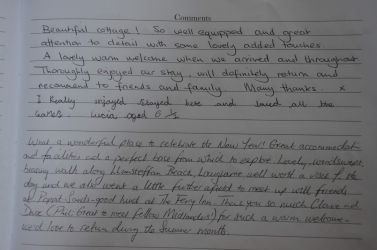 Comments
Beautiful cottage! So well equipped and great
attention to detail with some lovely added touches.
A lovely warm welcome when we arrived and throughout.
Thoroughly enjoyed our stay, will definitely return and
recommend to friends and family. Many thanks. x
I Really enjoyed stayed here and loved all the
games. Lucia aged 6 ½
What a wonderful place to celebrate the New Year! Great accommodation
and facilities and a perfect base from which to explore. Lovely, windswept,
bracing walk along Llansteffan Beach, Laugharne well worth a visit for the
day and we also went a little further afield to meet up with friends
at Poppit Sands - good lunch at The Ferry Inn. Thank you so much Clare and
Dave (Phil: Great to meet fellow Midlanders) for such a warm welcome -
we'd love to return during the Summer months.